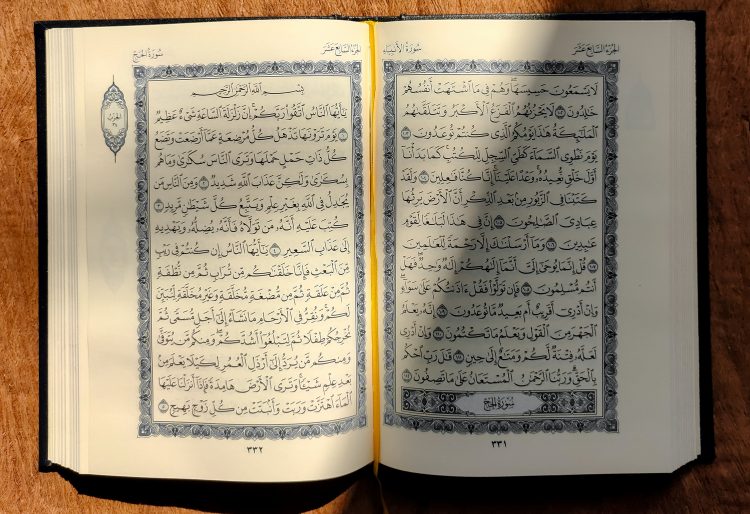 الجزء السابع عشر
سورة الأنبياء
لَا يَسْمَعُونَ حَسِيسَهَاۖ وَهُمْ فِي مَا ٱشْتَهَتْ أَنفُسُهُمْ
خَٰلِدُونَ ١٠٢ لَا يَحْزُنُهُمُ ٱلْفَزَعُ ٱلْأَكْبَرُ وَتَتَلَقَّىٰهُمُ
ٱلْمَلَٰٓئِكَةُ هَٰذَا يَوْمُكُمُ ٱلَّذِي كُنتُمْ تُوعَدُونَ ١٠٣
يَوْمَ نَطْوِي ٱلسَّمَآءَ كَطَيِّ ٱلسِّجِلِّ لِلْكُتُبِۚ كَمَا بَدَأْنَآ
أَوَّلَ خَلْقٍ نُّعِيدُهُۥۚ وَعْدًا عَلَيْنَآۚ إِنَّا كُنَّا فَٰعِلِينَ ١٠٤ وَلَقَدْ
كَتَبْنَا فِي ٱلزَّبُورِ مِنۢ بَعْدِ ٱلذِّكْرِ أَنَّ ٱلْأَرْضَ يَرِثُهَا
عِبَادِيَ ٱلصَّٰلِحُونَ ١٠٥ إِنَّ فِي هَٰذَا لَبَلَٰغًا لِّقَوْمٍ
عَٰبِدِينَ ١٠٦ وَمَآ أَرْسَلْنَٰكَ إِلَّا رَحْمَةً لِّلْعَٰلَمِينَ
١٠٧ قُلْ إِنَّمَا يُوحَىٰٓ إِلَيَّ أَنَّمَآ إِلَٰهُكُمْ إِلَٰهٌ وَٰحِدٌۖ فَهَلْ
أَنتُم مُّسْلِمُونَ ١٠٨ فَإِن تَوَلَّوْا۟ فَقُلْ ءَاذَنتُكُمْ عَلَىٰ سَوَآءٍۖ
وَإِنْ أَدْرِيٓ أَقَرِيبٌ أَم بَعِيدٌ مَّا تُوعَدُونَ ١٠٩ إِنَّهُۥ يَعْلَمُ
ٱلْجَهْرَ مِنَ ٱلْقَوْلِ وَيَعْلَمُ مَا تَكْتُمُونَ ١١٠ وَإِنْ أَدْرِي
لَعَلَّهُۥ فِتْنَةٌ لَّكُمْ وَمَتَٰعٌ إِلَىٰ حِينٍ ١١١ قَٰلَ رَبِّ ٱحْكُم
بِٱلْحَقِّۗ وَرَبُّنَا ٱلرَّحْمَٰنُ ٱلْمُسْتَعَانُ عَلَىٰ مَا تَصِفُونَ ١١٢
سورة الحج
٣٣١
الجزء السابع عشر
سورة الحج
الحزب ٣٤
بِسْمِ ٱللَّهِ ٱلرَّحْمَٰنِ ٱلرَّحِيمِ
يَٰٓأَيُّهَا ٱلنَّاسُ ٱتَّقُوا۟ رَبَّكُمْۚ إِنَّ زَلْزَلَةَ ٱلسَّاعَةِ شَيْءٌ عَظِيمٌ
١ يَوْمَ تَرَوْنَهَا تَذْهَلُ كُلُّ مُرْضِعَةٍ عَمَّآ أَرْضَعَتْ وَتَضَعُ
كُلُّ ذَاتِ حَمْلٍ حَمْلَهَا وَتَرَى ٱلنَّاسَ سُكَٰرَىٰ وَمَا هُم
بِسُكَٰرَىٰ وَلَٰكِنَّ عَذَابَ ٱللَّهِ شَدِيدٌ ٢ وَمِنَ ٱلنَّاسِ مَن
يُجَٰدِلُ فِي ٱللَّهِ بِغَيْرِ عِلْمٍ وَيَتَّبِعُ كُلَّ شَيْطَٰنٍ مَّرِيدٍ ٣
كُتِبَ عَلَيْهِ أَنَّهُۥ مَن تَوَلَّاهُ فَأَنَّهُۥ يُضِلُّهُۥ وَيَهْدِيهِ
إِلَىٰ عَذَابِ ٱلسَّعِيرِ ٤ يَٰٓأَيُّهَا ٱلنَّاسُ إِن كُنتُمْ فِي رَيْبٍ
مِّنَ ٱلْبَعْثِ فَإِنَّا خَلَقْنَٰكُم مِّن تُرَابٍ ثُمَّ مِن نُّطْفَةٍ
ثُمَّ مِنْ عَلَقَةٍ ثُمَّ مِن مُّضْغَةٍ مُّخَلَّقَةٍ وَغَيْرِ مُخَلَّقَةٍ لِّنُبَيِّنَ
لَكُمْۚ وَنُقِرُّ فِي ٱلْأَرْحَامِ مَا نَشَآءُ إِلَىٰٓ أَجَلٍ مُّسَمًّى ثُمَّ
نُخْرِجُكُمْ طِفْلًا ثُمَّ لِتَبْلُغُوٓا۟ أَشُدَّكُمْۖ وَمِنكُم مَّن يُتَوَفَّىٰ
وَمِنكُم مَّن يُرَدُّ إِلَىٰٓ أَرْذَلِ ٱلْعُمُرِ لِكَيْلَا يَعْلَمَ مِنۢ
بَعْدِ عِلْمٍ شَيْـًٔاۚ وَتَرَى ٱلْأَرْضَ هَامِدَةً فَإِذَآ أَنزَلْنَا عَلَيْهَا
ٱلْمَآءَ ٱهْتَزَّتْ وَرَبَتْ وَأَنۢبَتَتْ مِن كُلِّ زَوْجٍۭ بَهِيجٍ ٥
٣٣٢